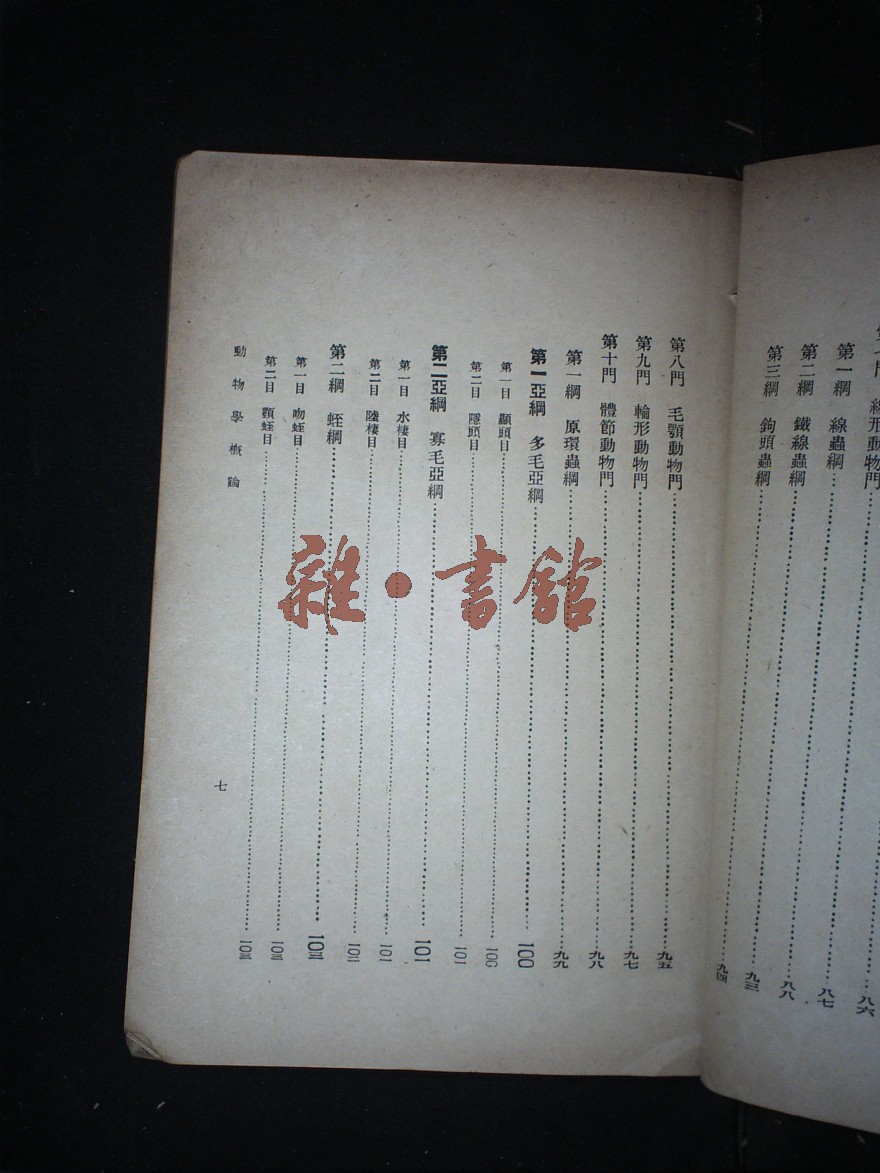 八六
門 線形動物門……八七
第一綱 線蟲綱……八八
第二綱 鐵線蟲綱……九三
第三綱 鉤頭蟲綱……九四
第八門 毛顎動物門……九五
第九門 輪形動物門……九七
第十門 體節動物門……九八
第一綱 原環蟲綱……九九
第一亞綱 多毛亞綱……一〇〇
第一目 顯頭目……一〇〇
第二目 隱頭目……一〇一
第二亞綱 寡毛亞綱……一〇一
第一目 水棲目……一〇一
第二目 陸棲目……一〇二
第二綱 蛭綱……一〇三
第一目 吻蛭目……一〇三
第二目 顎蛭目……一〇三
動物學概論
七
雜·書館